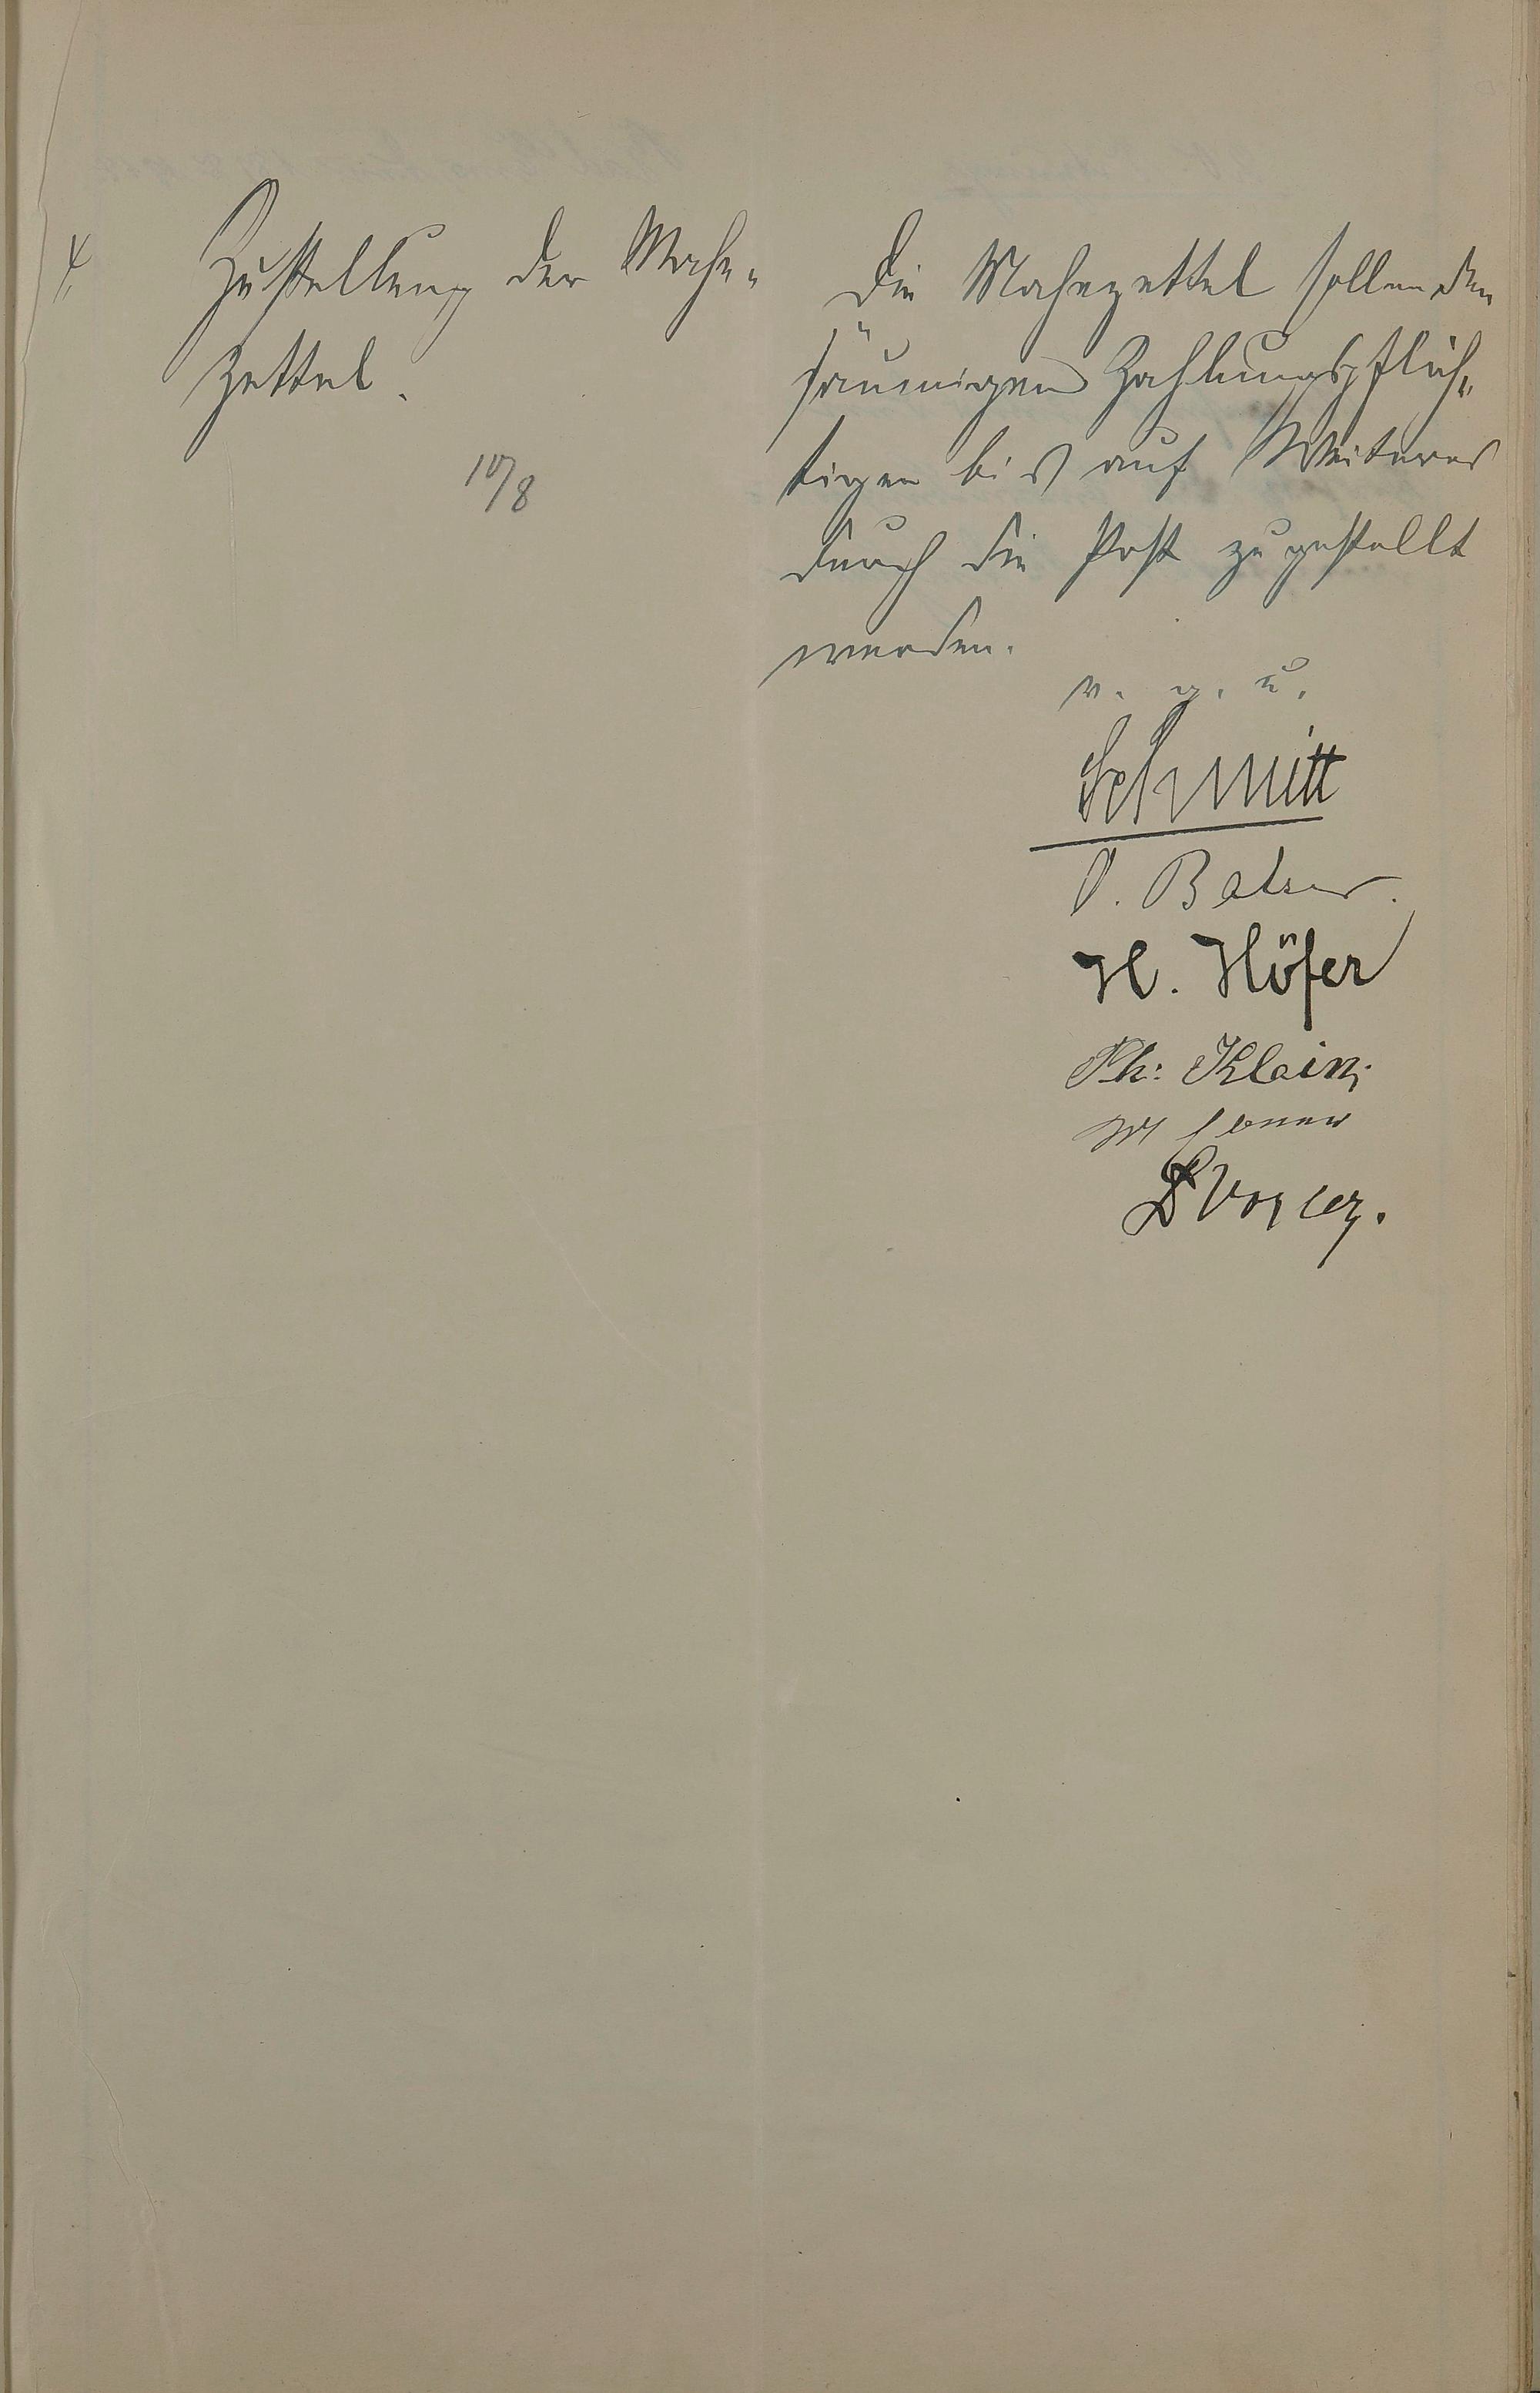 4.
Zustellung der Mahn-
zettel.
10/8
Die Mahnzettel sollen den
säumigen Zahlungspflich-
tigen bis auf Weiteres
durch die Post zugestellt
werden.
v. g. u.
Schmitt
O. Balser.
H. Höfer
Ph: Klein